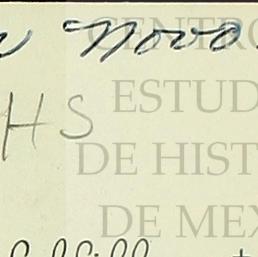 Novo
CENTRO
ESTUD
HS
DE HIST
DE MEX